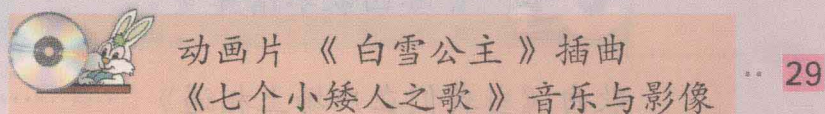 动画片 《 白雪公主 》 插曲
《七个小矮人之歌 》 音乐与影像 ·· 29